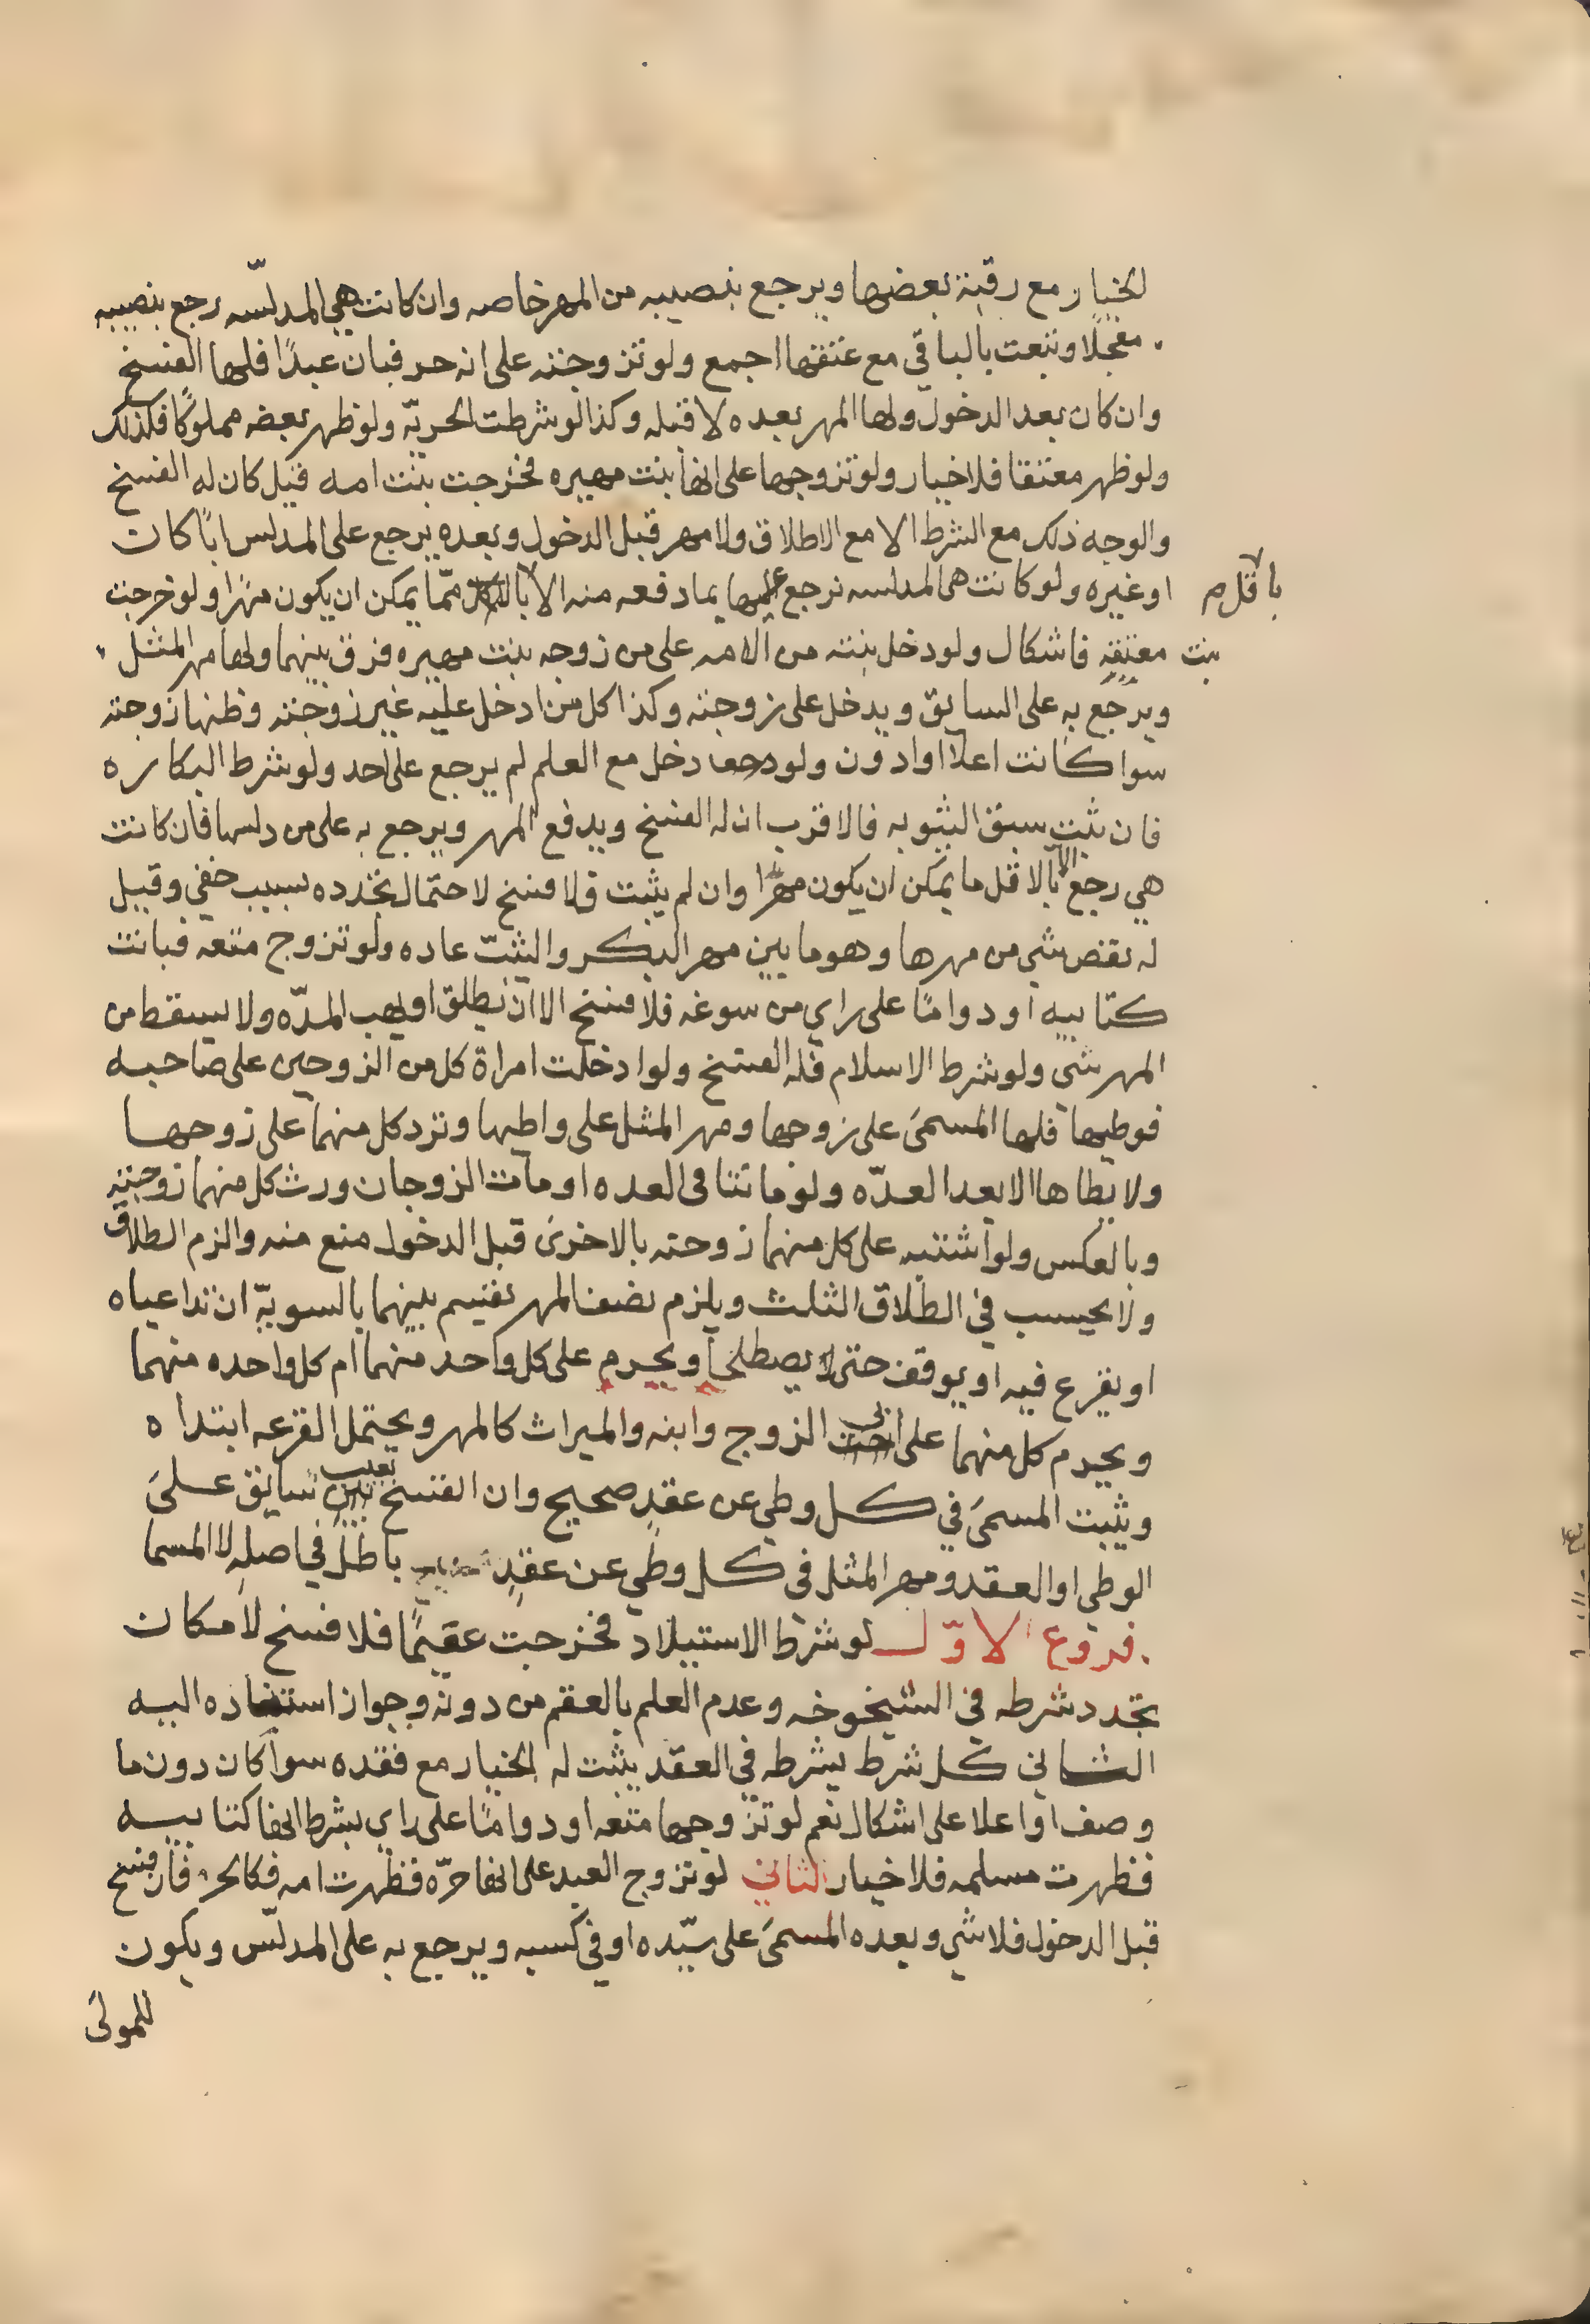 الخيار مع رقية بعضها ويرجع بنصيبه من المهر خاصه وان كانت هي المدلّسه رجع بنصيبه
معجلا وتتبعت بالباقي مع عتقها اجمع ولو تزوجته على انه حر فبان عبدًا فلها الفسخ
وان كان بعد الدخول ولها المهر بعده لا قبله وكذا لو شرطت الحريّه ولو ظهر بعضه مملوكًا فكذلك
ولو ظهر معتقا فلا خيار ولو تزوجها على انها بنت مهيره فخرجت بنت امه قيل كان له الفسخ
والوجه ذلك مع الشرط لا مع الاطلاق ولا مهر قبل الدخول وبعده يرجع على المدلس ابًا كان
او غيره ولو كانت هى المدلسه نرجع عليها بما دفعه منه الا ممّا يمكن ان يكون مهرًا ولو خرجت
باقل م
بنت معتقه فاشكال ولو دخل بنته من الامه على من زوجه بنت مهيره فرق بينهما ولها مهر المثل
ويرجع به على السايق ويدخل على زوجته وكذا كل من ادخل عليه غير زوجته وظنها زوجته
سوا كانت اعلا او ادون ولو دخل مع العلم لم يرجع على احد ولو شرط البكاره
فان ثبت سبق الثيوبه فالاقرب ان له الفسخ ويدفع المهر ويرجع به على من دلسها فان كانت
هي رجع الا بالاقل ما يمكن ان يكون مهرًا وان لم يثبت فلا فسخ لاحتمال تجدده بسبب خفي وقيل
له نقص شي من مهرها وهو ما بين مهر البكر والثيّب عاده ولو تزوج متعه فبانت
كتابيه او دوامًا على راي من سوغه فلا فسخ الا ان يطلق او يهب المدّه ولا يسقط من
المهر شي ولو شرط الاسلام فله الفسخ ولو ادخلت امراة كل من الزوجين على صاحبه
فوطيها فلها المسمى على زوجها ومهر المثل على واطيها وترد كل منهما على زوجها
ولا يطاها الا بعد العدّه ولو ماتتا فى العده او مات الزوجان ورث كل منهما زوجته
وبالعكس ولو اشتبه على كل منهما زوجته بالاخرى قبل الدخول منع منه والزم الطلاق
ولا يحسب في الطلاق الثلث ويلزم نصف المهر تقسيم بينهما بالسويّة ان تداعياه
او يقرع فيه او يوقف حتى يصطلحا ويحرم على كل واحد منهما ام كل واحده منهما
ويحرم كل منهما على ابي الزوج وابنه والميراث كالمهر ويحتمل القرعه ابتداه
ويثبت المسمى في كل وطي عن عقدٍ صحيح وان الفسخ بعيب سابق على
الوطى او العقد ومهر المثل فى كل وطي عن عقدٍ باطل في اصله لا المسما
فروع الاوّل لو شرط الاستيلاد فخرجت عقيمًا فلا فسخ لامكان
تجدد شرطه في الشيخوخه وعدم العلم بالعقم من دونه وجواز استناده اليه
الثاني كل شرط يشرطه في العقد يثبت له الخيار مع فقده سوا كان دون ما
وصف او اعلا على اشكال نعم لو تزوجها متعه او دوامًا على راي بشرط انها كتابيه
فظهرت مسلمه فلا خيار الثاني لو تزوج العبد على انها حرّه فظهرت امه فكالحر فان فسخ
قبل الدخول فلا شي وبعده المسمى على سيّده او في كسبه ويرجع به على المدلّس ويكون
للمولى